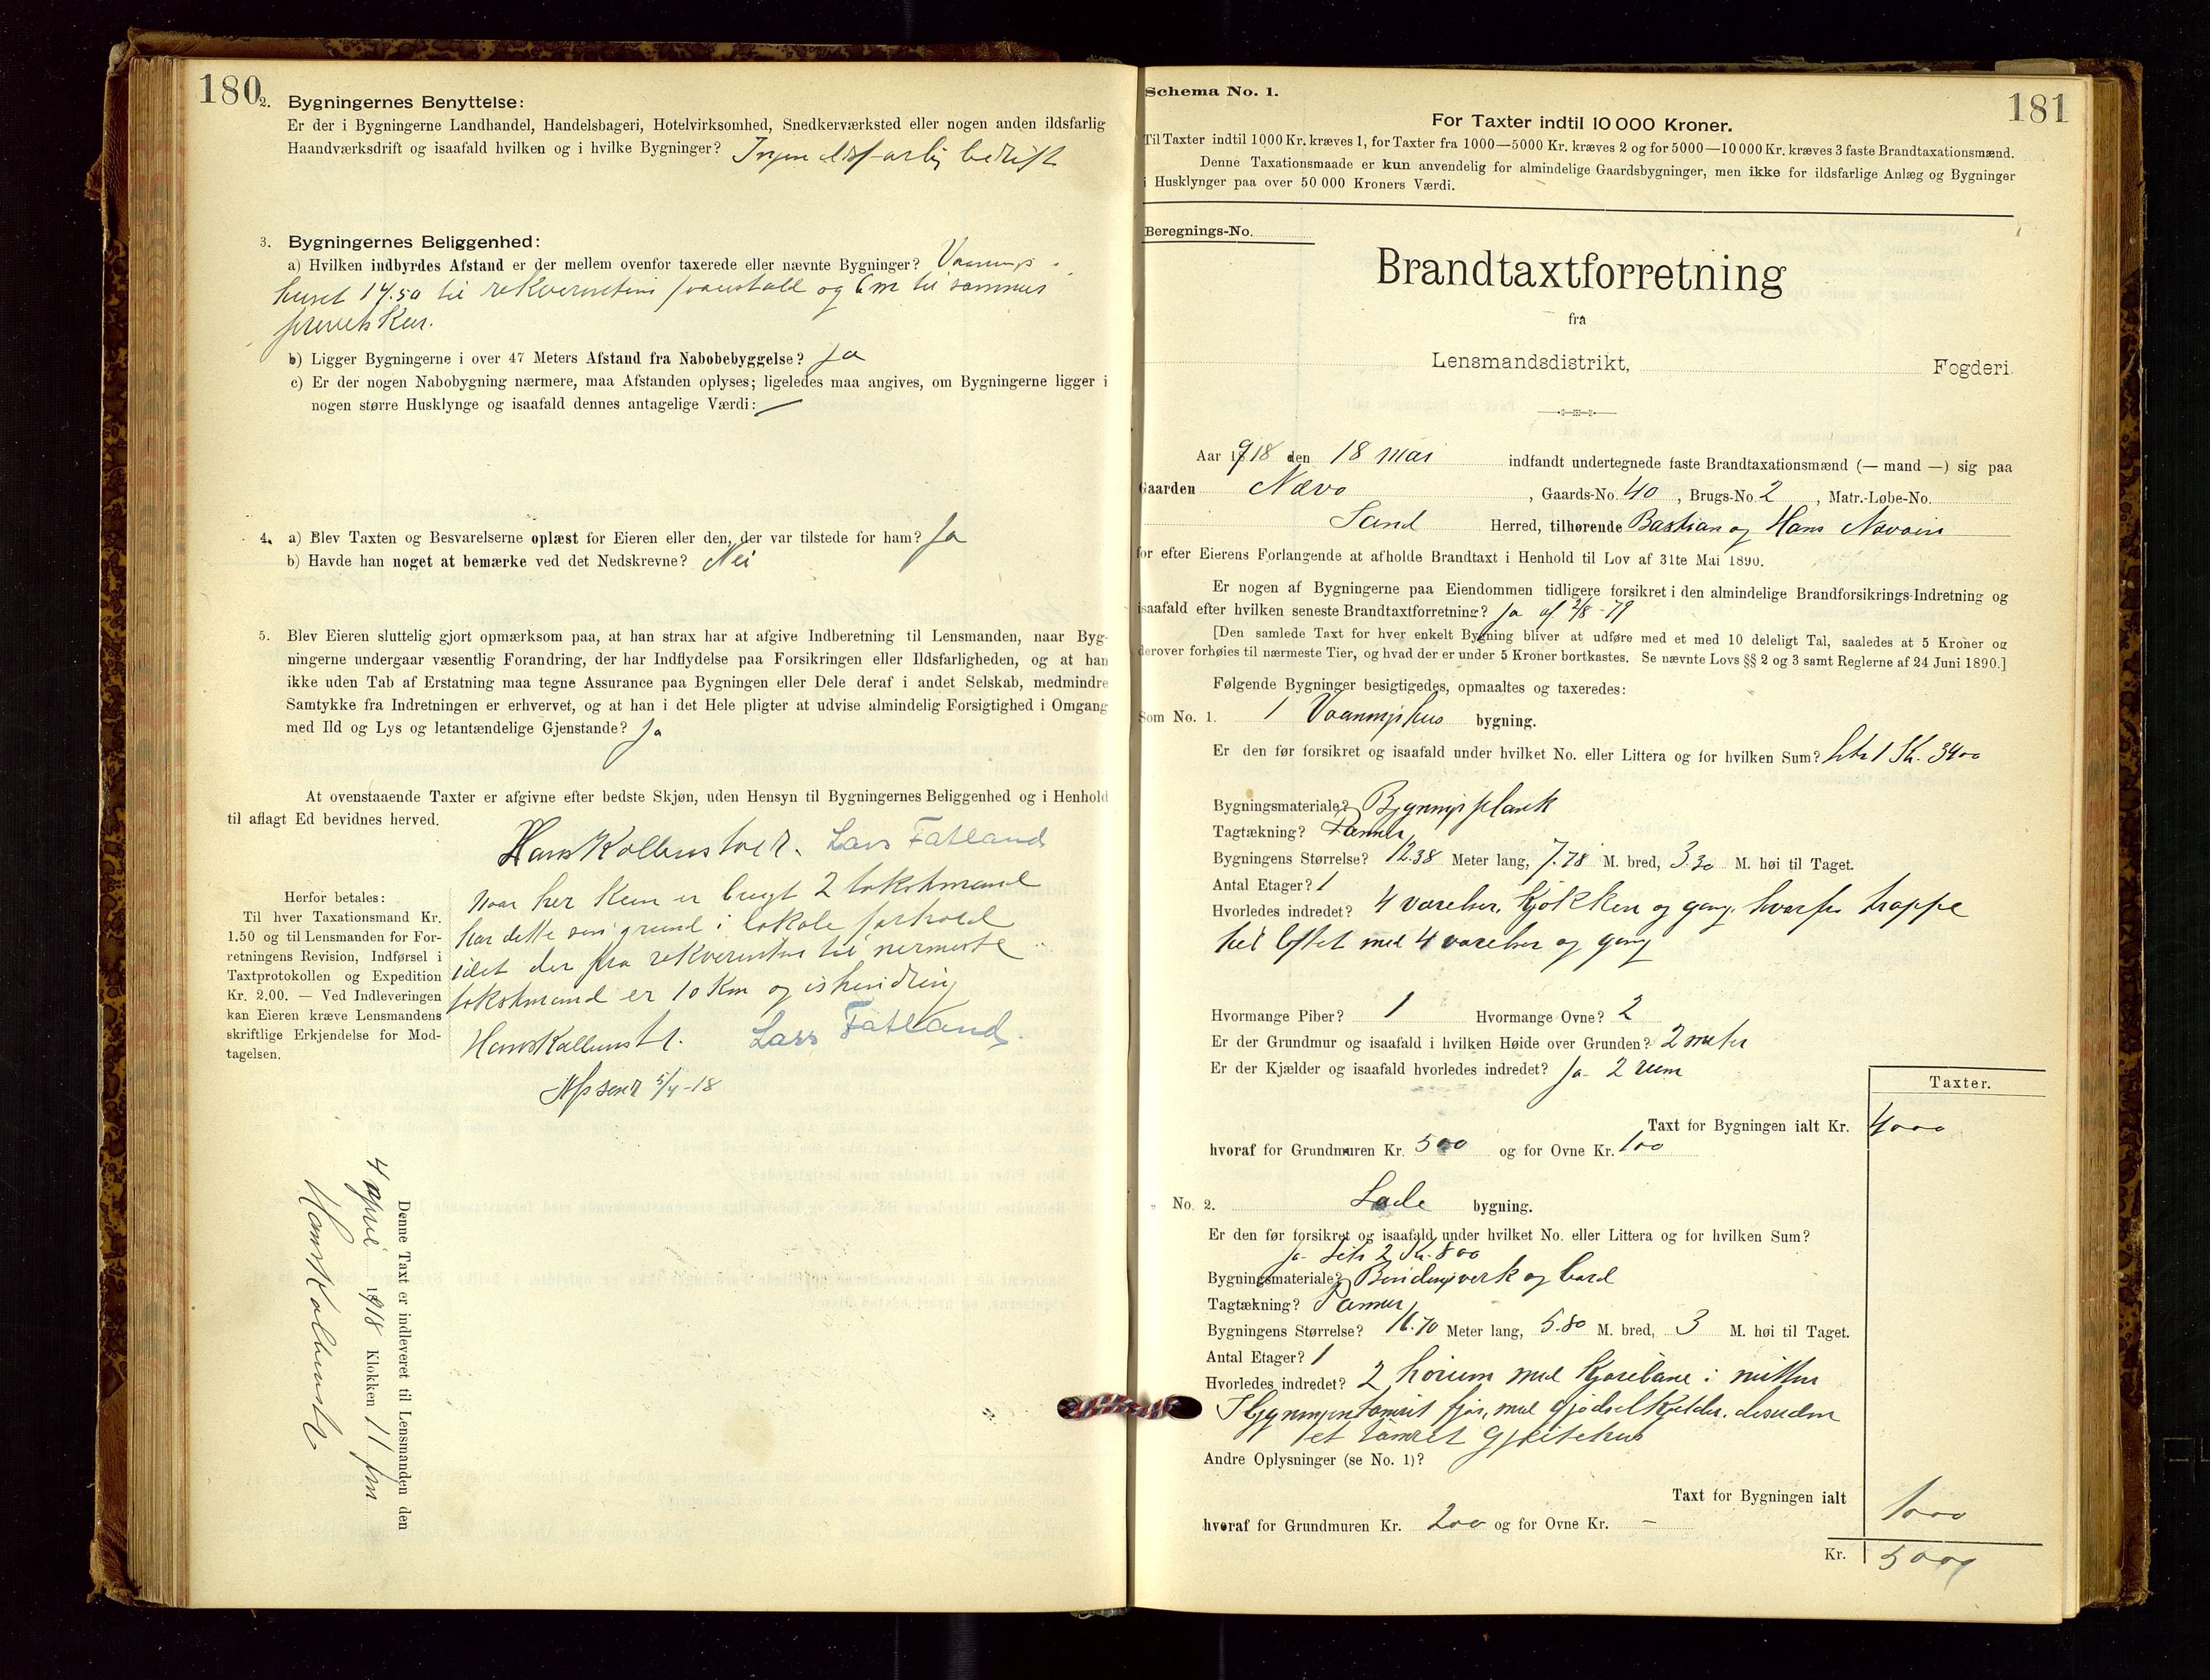 180
2. Bygningernes Benyttelse:
Er der i Bygningerne Landhandel, Handelsbageri, Hotelvirksomhed, Snedkerværksted eller nogen anden ildsfarlig
Haandværksdrift og isaafald hvilken og i hvilke Bygninger? Ingen ildsfarlig bedrift
3. Bygningernes Beliggenhed:
a) Hvilken indbyrdes Afstand er der mellem ovenfor taxerede eller nævnte Bygninger? Vaanings-
huset 14.50 til rekverentens og 6 m til sammes
b) Ligger Bygningerne i over 47 Meters Afstand fra Nabobebyggelse? Ja
c) Er der nogen Nabobygning nærmere, maa Afstanden oplyses; ligeledes maa angives, om Bygningerne ligger i
nogen større Husklynge og isaafald dennes antagelige Værdi: —
4. a) Blev Taxten og Besvarelserne oplæst for Eieren eller den, der var tilstede for ham? Ja
b) Havde han noget at bemærke ved det Nedskrevne? Nei
5. Blev Eieren sluttelig gjort opmærksom paa, at han strax har at afgive Indberetning til Lensmanden, naar Byg-
ningerne undergaar væsentlig Forandring, der har Indflydelse paa Forsikringen eller Ildsfarligheden, og at han
ikke uden Tab af Erstatning maa tegne Assurance paa Bygningen eller Dele deraf i andet Selskab, medmindre
Samtykke fra Indretningen er erhvervet, og at han i det Hele pligter at udvise almindelig Forsigtighed i Omgang
med Ild og Lys og letantændelige Gjenstande? Ja
At ovenstaaende Taxter er afgivne efter bedste Skjøn, uden Hensyn til Bygningernes Beliggenhed og i Henhold
til aflagt Ed bevidnes herved.
Hans Kolbenstvedt. Lars Fatland
Herfor betales:
Til hver Taxationsmand Kr.
1.50 og til Lensmanden for For-
retningens Revision, Indførsel i
Taxtprotokollen og Expedition
Kr. 2.00. — Ved Indleveringen
kan Eieren kræve Lensmandens
skriftlige Erkjendelse for Mod-
tagelsen.
Naar her kun er brugt 2 takstmænd
har dette sin grund i lokale forhold
idet der fra rekverenten til nermeste
takstmand er 10 Km og ishindring
Hans Kolbenstv. Lars Fatland.
5/4-18
Denne Taxt er indleveret til Lensmanden den
4 april 1918 Klokken 11 fm
Hans Kolbenstv
181
Schema No. 1.
For Taxter indtil 10 000 Kroner.
Til Taxter indtil 1000 Kr. kræves 1, for Taxter fra 1000—5000 Kr. kræves 2 og for 5000—10 000 Kr. kræves 3 faste Brandtaxationsmænd.
Denne Taxationsmaade er kun anvendelig for almindelige Gaardsbygninger, men ikke for ildsfarlige Anlæg og Bygninger
i Husklynger paa over 50 000 Kroners Værdi.
Beregnings-No.
Brandtaxtforretning
fra
Lensmandsdistrikt, Fogderi
Aar 1918 den 18 mai indfandt undertegnede faste Brandtaxationsmænd (— mand —) sig paa
Gaarden Nævø, Gaards-No. 40, Brugs-No. 2, Matr.-Løbe-No.
Sand Herred, tilhørende Bastian og Hans Nævøen
for efter Eierens Forlangende at afholde Brandtaxt i Henhold til Lov af 31te Mai 1890.
Er nogen af Bygningerne paa Eiendommen tidligere forsikret i den almindelige Brandforsikrings-Indretning og
isaafald efter hvilken seneste Brandtaxtforretning? Ja af 2/8-79
[Den samlede Taxt for hver enkelt Bygning bliver at udføre med et med 10 deleligt Tal, saaledes at 5 Kroner og
derover forhøies til nærmeste Tier, og hvad der er under 5 Kroner bortkastes. Se nævnte Lovs §§ 2 og 3 samt Reglerne af 24 Juni 1890.]
Følgende Bygninger besigtigedes, opmaaltes og taxeredes:
Som No. 1. 1 Vaaningshus bygning.
Er den før forsikret og isaafald under hvilket No. eller Littera og for hvilken Sum? Litr 1 Kr. 3400
Bygningsmateriale? Bygningsplank
Tagtækning? Panner
Bygningens Størrelse? 12.38 Meter lang, 7.78 M. bred, 3.30 M. høi til Taget.
Antal Etager? 1
Hvorledes indredet? 4 værelser, kjøkken og gang, hvorfra trappe
til loftet med 4 værelser og gang
Hvormange Piber? 1 Hvormange Ovne? 2
Er der Grundmur og isaafald i hvilken Høide over Grunden? 2 meter
Er der Kjælder og isaafald hvorledes indredet? Ja - 2 rum
Taxter.
Taxt for Bygningen ialt Kr. 4000
hvoraf for Grundmuren Kr. 500 og for Ovne Kr. 100
No. 2. Lade bygning.
Er den før forsikret og isaafald under hvilket No. eller Littera og for hvilken Sum?
Ja - Litr 2 Kr. 800
Bygningsmateriale? Bindingsverk og bord
Tagtækning? Panner
Bygningens Størrelse? 11.70 Meter lang, 5.80 M. bred, 3 M. høi til Taget.
Antal Etager? 1
Hvorledes indredet? 2 hørum med kjørebane i mitten
I bygningen tømret fjøs, med gjødselkjelder, desuden
et tømret gjeitehus
Andre Oplysninger (se No. 1)?
Taxt for Bygningen ialt 1000
hvoraf for Grundmuren Kr. 200 og for Ovne Kr. —
Kr. 5000